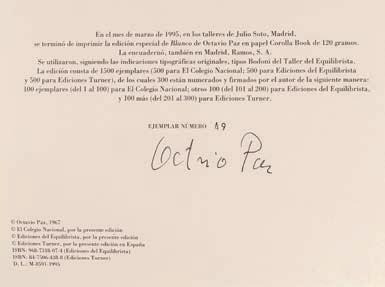 En el mes de marzo de 1995, en los talleres de Julio Soto, Madrid,
se terminó de imprimir la edición especial de Blanco de Octavio Paz en papel Corolla Book de 120 gramos.
La encuadernó, también en Madrid, Ramos, S. A.
Se utilizaron, siguiendo las indicaciones tipográficas originales, tipos Bodoni del Taller del Equilibrista.
La edición consta de 1500 ejemplares (500 para El Colegio Nacional; 500 para Ediciones del Equilibrista
y 500 para Ediciones Turner), de los cuales 300 están numerados y firmados por el autor de la siguiente manera:
100 ejemplares (del 1 al 100) para El Colegio Nacional; otros 100 (del 101 al 200) para Ediciones del Equilibrista,
y 100 más (del 201 al 300) para Ediciones Turner.
EJEMPLAR NÚMERO 49
Octavio Paz
© Octavio Paz, 1967
© El Colegio Nacional, por la presente edición
© Ediciones del Equilibrista, por la presente edición
© Ediciones Turner, por la presente edición en España
ISBN: 968-7318-07-4 (Ediciones del Equilibrista)
ISBN: 84-7506-438-8 (Ediciones Turner)
D. L.: M-8501-1995